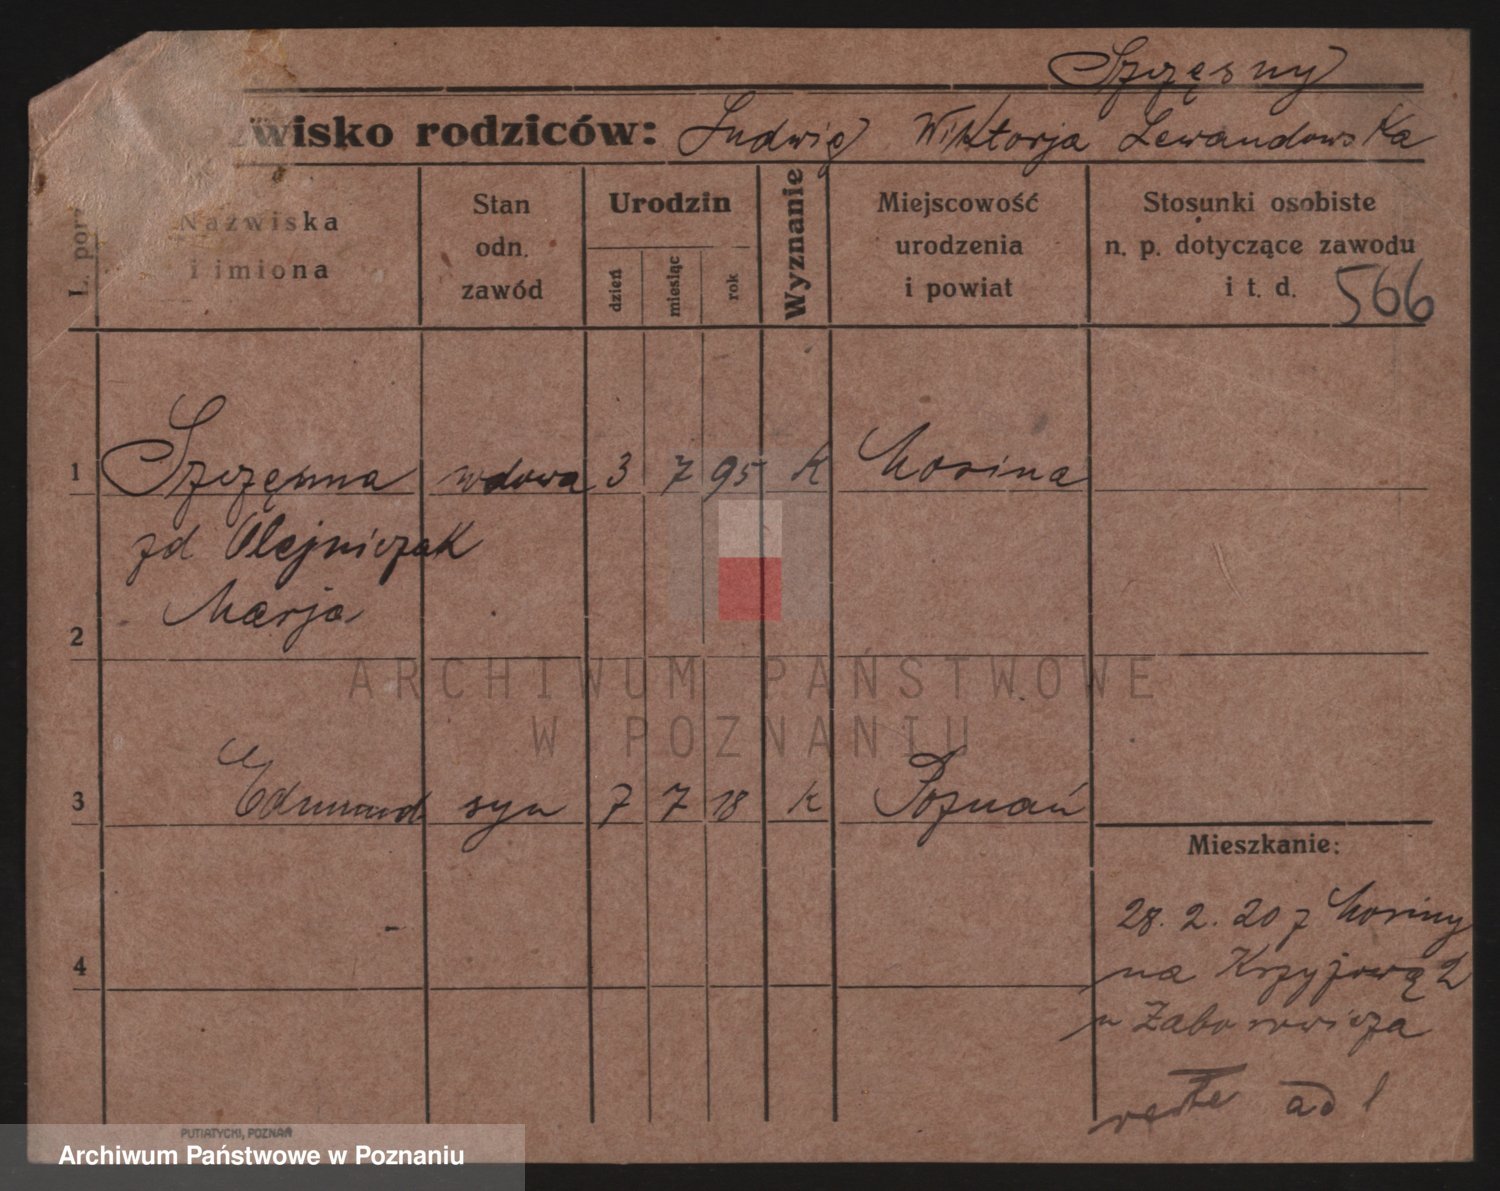 Szczęsny
zwisko rodziców: Ludwig Wiktorja Lewandowska
L. por.
Nazwiska
i imiona
Stan
odn.
zawód
Urodzin
dzień
miesiąc
rok
Wyznanie
Miejscowość
urodzenia
i powiat
Stosunki osobiste
n. p. dotyczące zawodu
i t. d.
566
1 Szczęsna wdowa 3 7 95 k Mosina
zd Olejniczak
Marja
2
3 Edmund syn 7 7 18 k Poznań
Mieszkanie:
28. 2. 20 z Mosiny
na Krzyżową 2
u Zaborowicza
ad 1
4
PUTIATYCKI, POZNAŃ
ARCHIWUM PAŃSTWOWE
W POZNANIU
Archiwum Państwowe w Poznaniu